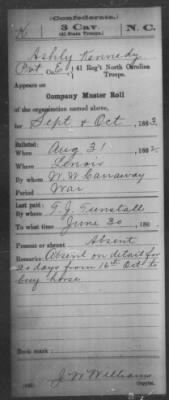 (Confederate.)
K 3 Cav. N. C.
(41 State Troops.)
Ashly Kennedy
Pvt Co. 41 Reg't North Carolina Troops.
Appears on
Company Muster Roll
of the organization named above,
for Sept & Oct, 1863.
Enlisted:
When Aug 31, 186
Where Lenoir
By whom W. W. Carraway
Period War
Last paid:
By whom T. J. Tunstall
To what time June 30, 186
Present or absent Absent
Remarks: Absent on detail for
20 days from 16th Oct to
buy horse
Book mark:
J. W. Williams
Copyist.